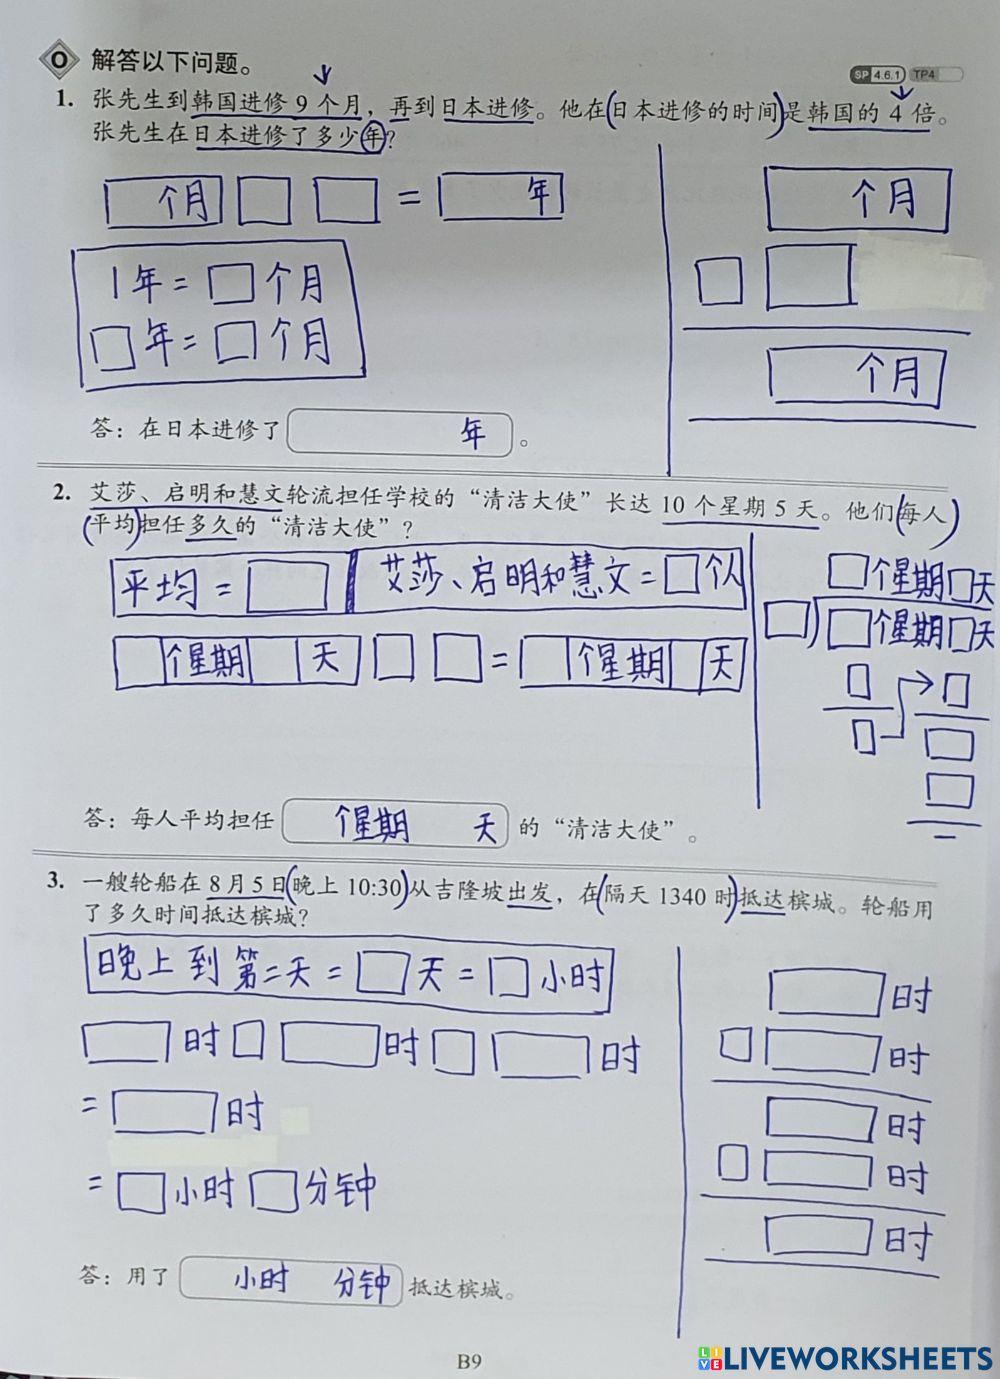 O 解答以下问题。
SP 4.6.1 TP4
1. 张先生到韩国进修 9 个月，再到日本进修。他在(日本进修的时间)是韩国的 4 倍。
张先生在日本进修了多少年？
个月 = 年
个月
1年 = 个月
年 = 个月
个月
答：在日本进修了 年 。
2. 艾莎、启明和慧文轮流担任学校的“清洁大使”长达 10 个星期 5 天。他们(每人
(平均)担任多久的“清洁大使”？ )
平均 = 艾莎、启明和慧文 = 个人
个星期 天
个星期 天
个星期 天 = 个星期 天
答：每人平均担任 个星期 天 的“清洁大使”。
3. 一艘轮船在 8 月 5 日(晚上 10:30)从吉隆坡出发，在(隔天 1340 时)抵达槟城。轮船用
了多久时间抵达槟城？
晚上到第二天 = 天 = 小时
时 时 时
= 时
= 小时 分钟
时
时
时
时
时
答：用了 小时 分钟 抵达槟城。
B9
LIVEWORKSHEETS